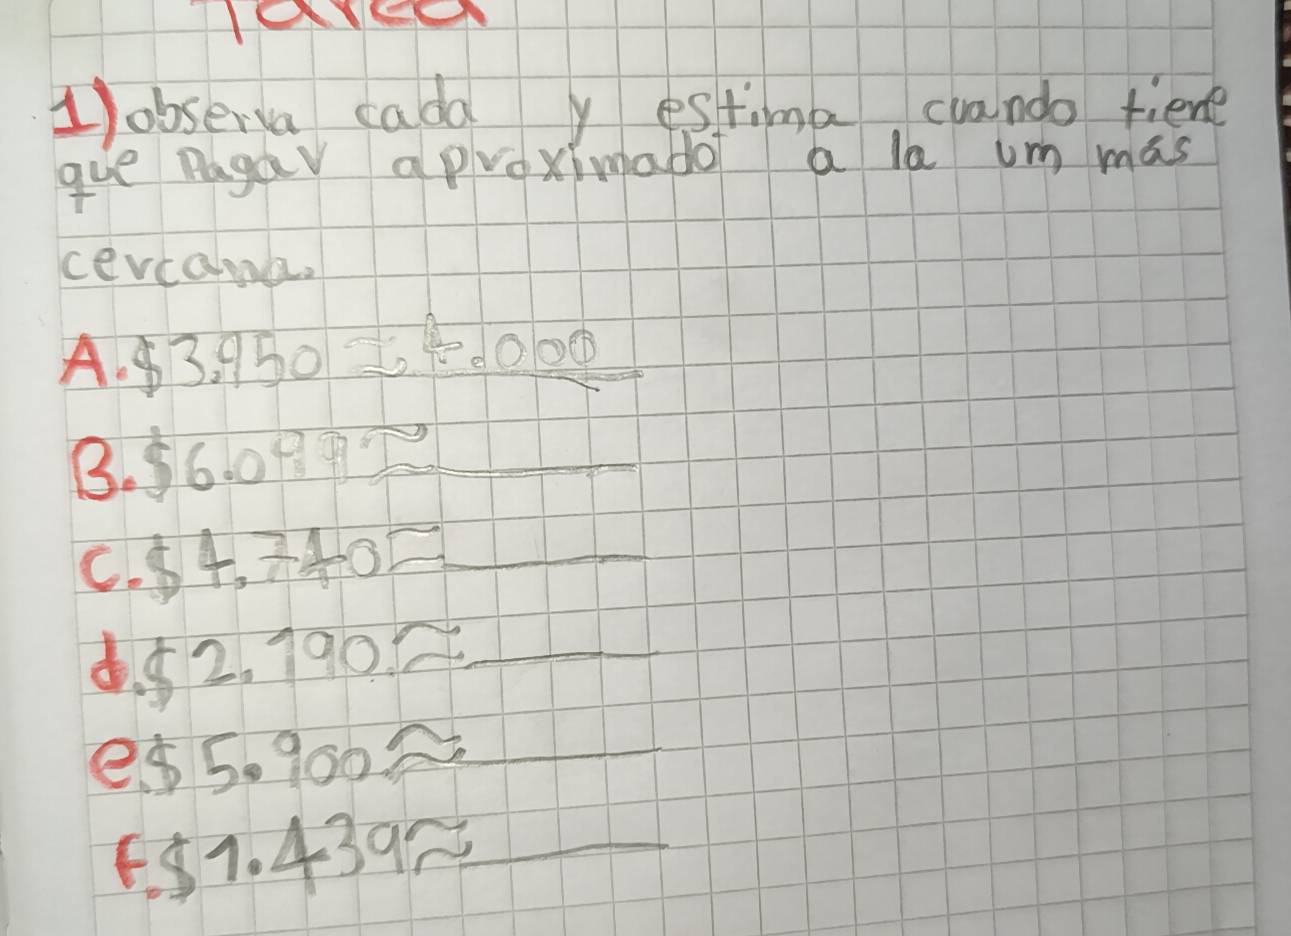 Tarea
1) observa cada y estima cuando tiene
que Pagar aproximado a la um más
cercana.
A. $3.950 ≈ 4.000
B. $6.099 ≈
C. $4.740 ≈
d. $2.190 ≈
e $5.900 ≈
f. $1.439 ≈